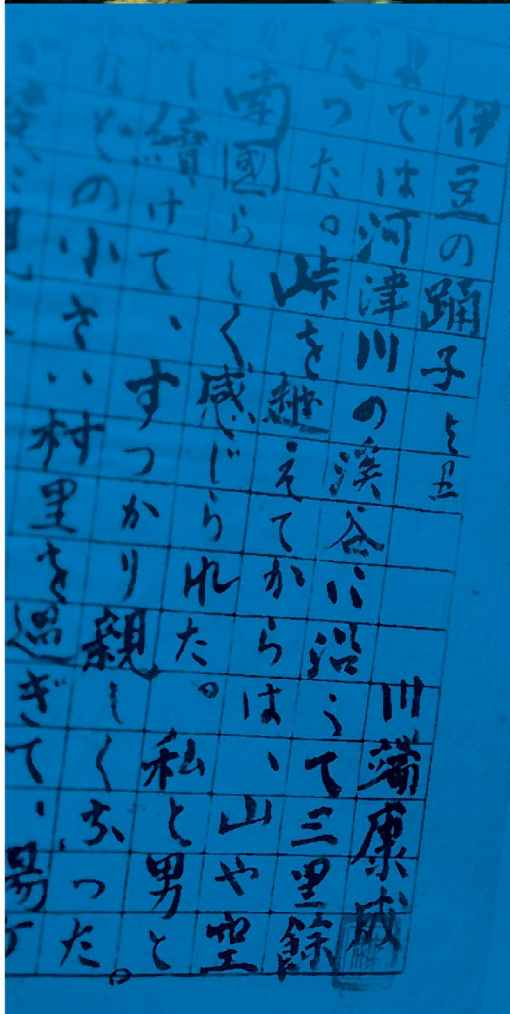 伊豆の踊子 川端康成
では河津川の渓谷に沿うて三里餘
だつた。峠を越えてからは、山や空
南國らしく感じられた。私と男と
し續けて、すつかり親しくなつた。
などの小さい村里を過ぎて、湯ケ